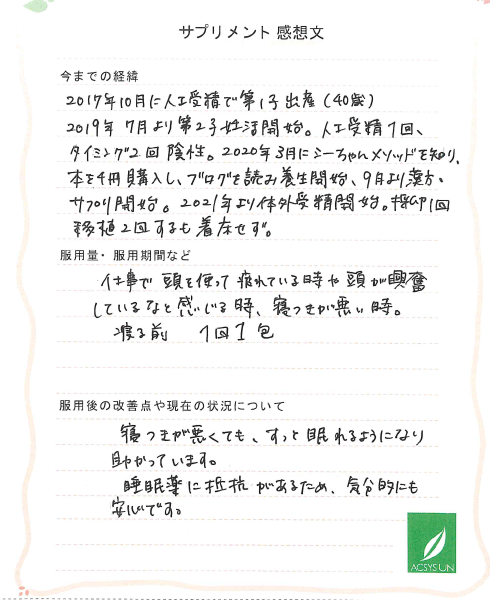 サプリメント 感想文
今までの経緯
2017年10月に人工受精で第1子出産(40歳)
2019年7月より第2子妊活開始。人工受精1回、
タイミング2回陰性。2020年3月にシーちゃんメソッドを知り、
本を4冊購入し、ブログを読み養生開始、9月より漢方・
サプリ開始。2021年より体外受精開始。採卵1回
移植2回するも着床せず。
服用量・服用期間など
仕事で頭を使って疲れている時や頭が興奮
しているなと感じる時、寝つきが悪い時。
寝る前 1回1包
服用後の改善点や現在の状況について
寝つきが悪くても、すっと眠れるようになり
助かっています。
睡眠薬に抵抗があるため、気分的にも
安心です。
ACSYSUN